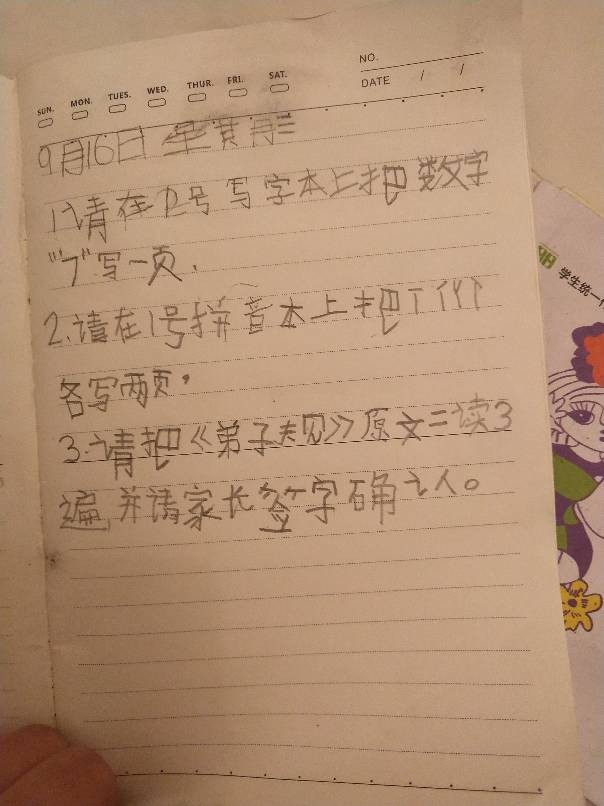 SUN. MON. TUES. WED. THUR. FRI. SAT.
NO.
DATE / /
9月16日 星期三
1、请在12号写字本上把数字
"7"写一页.
2.请在1号拼音本上把
各写两页。
3.请把《弟子规》原文二读3
遍,并请家长签字确认。
学生统一